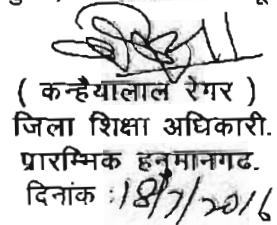 ( कन्हैयालाल रेगर )
जिला शिक्षा अधिकारी.
प्रारम्भिक हनुमानगढ.
दिनांक :18/7/2016